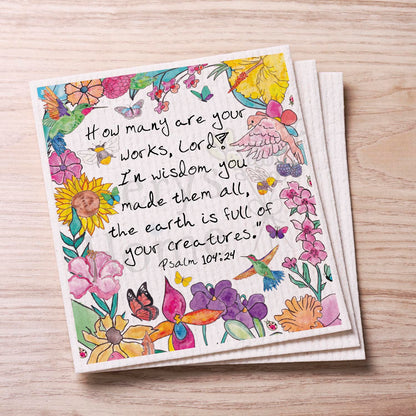 How many are your
works, Lord!
In wisdom you
made them all,
the earth is full of
your creatures."
Psalm 104:24